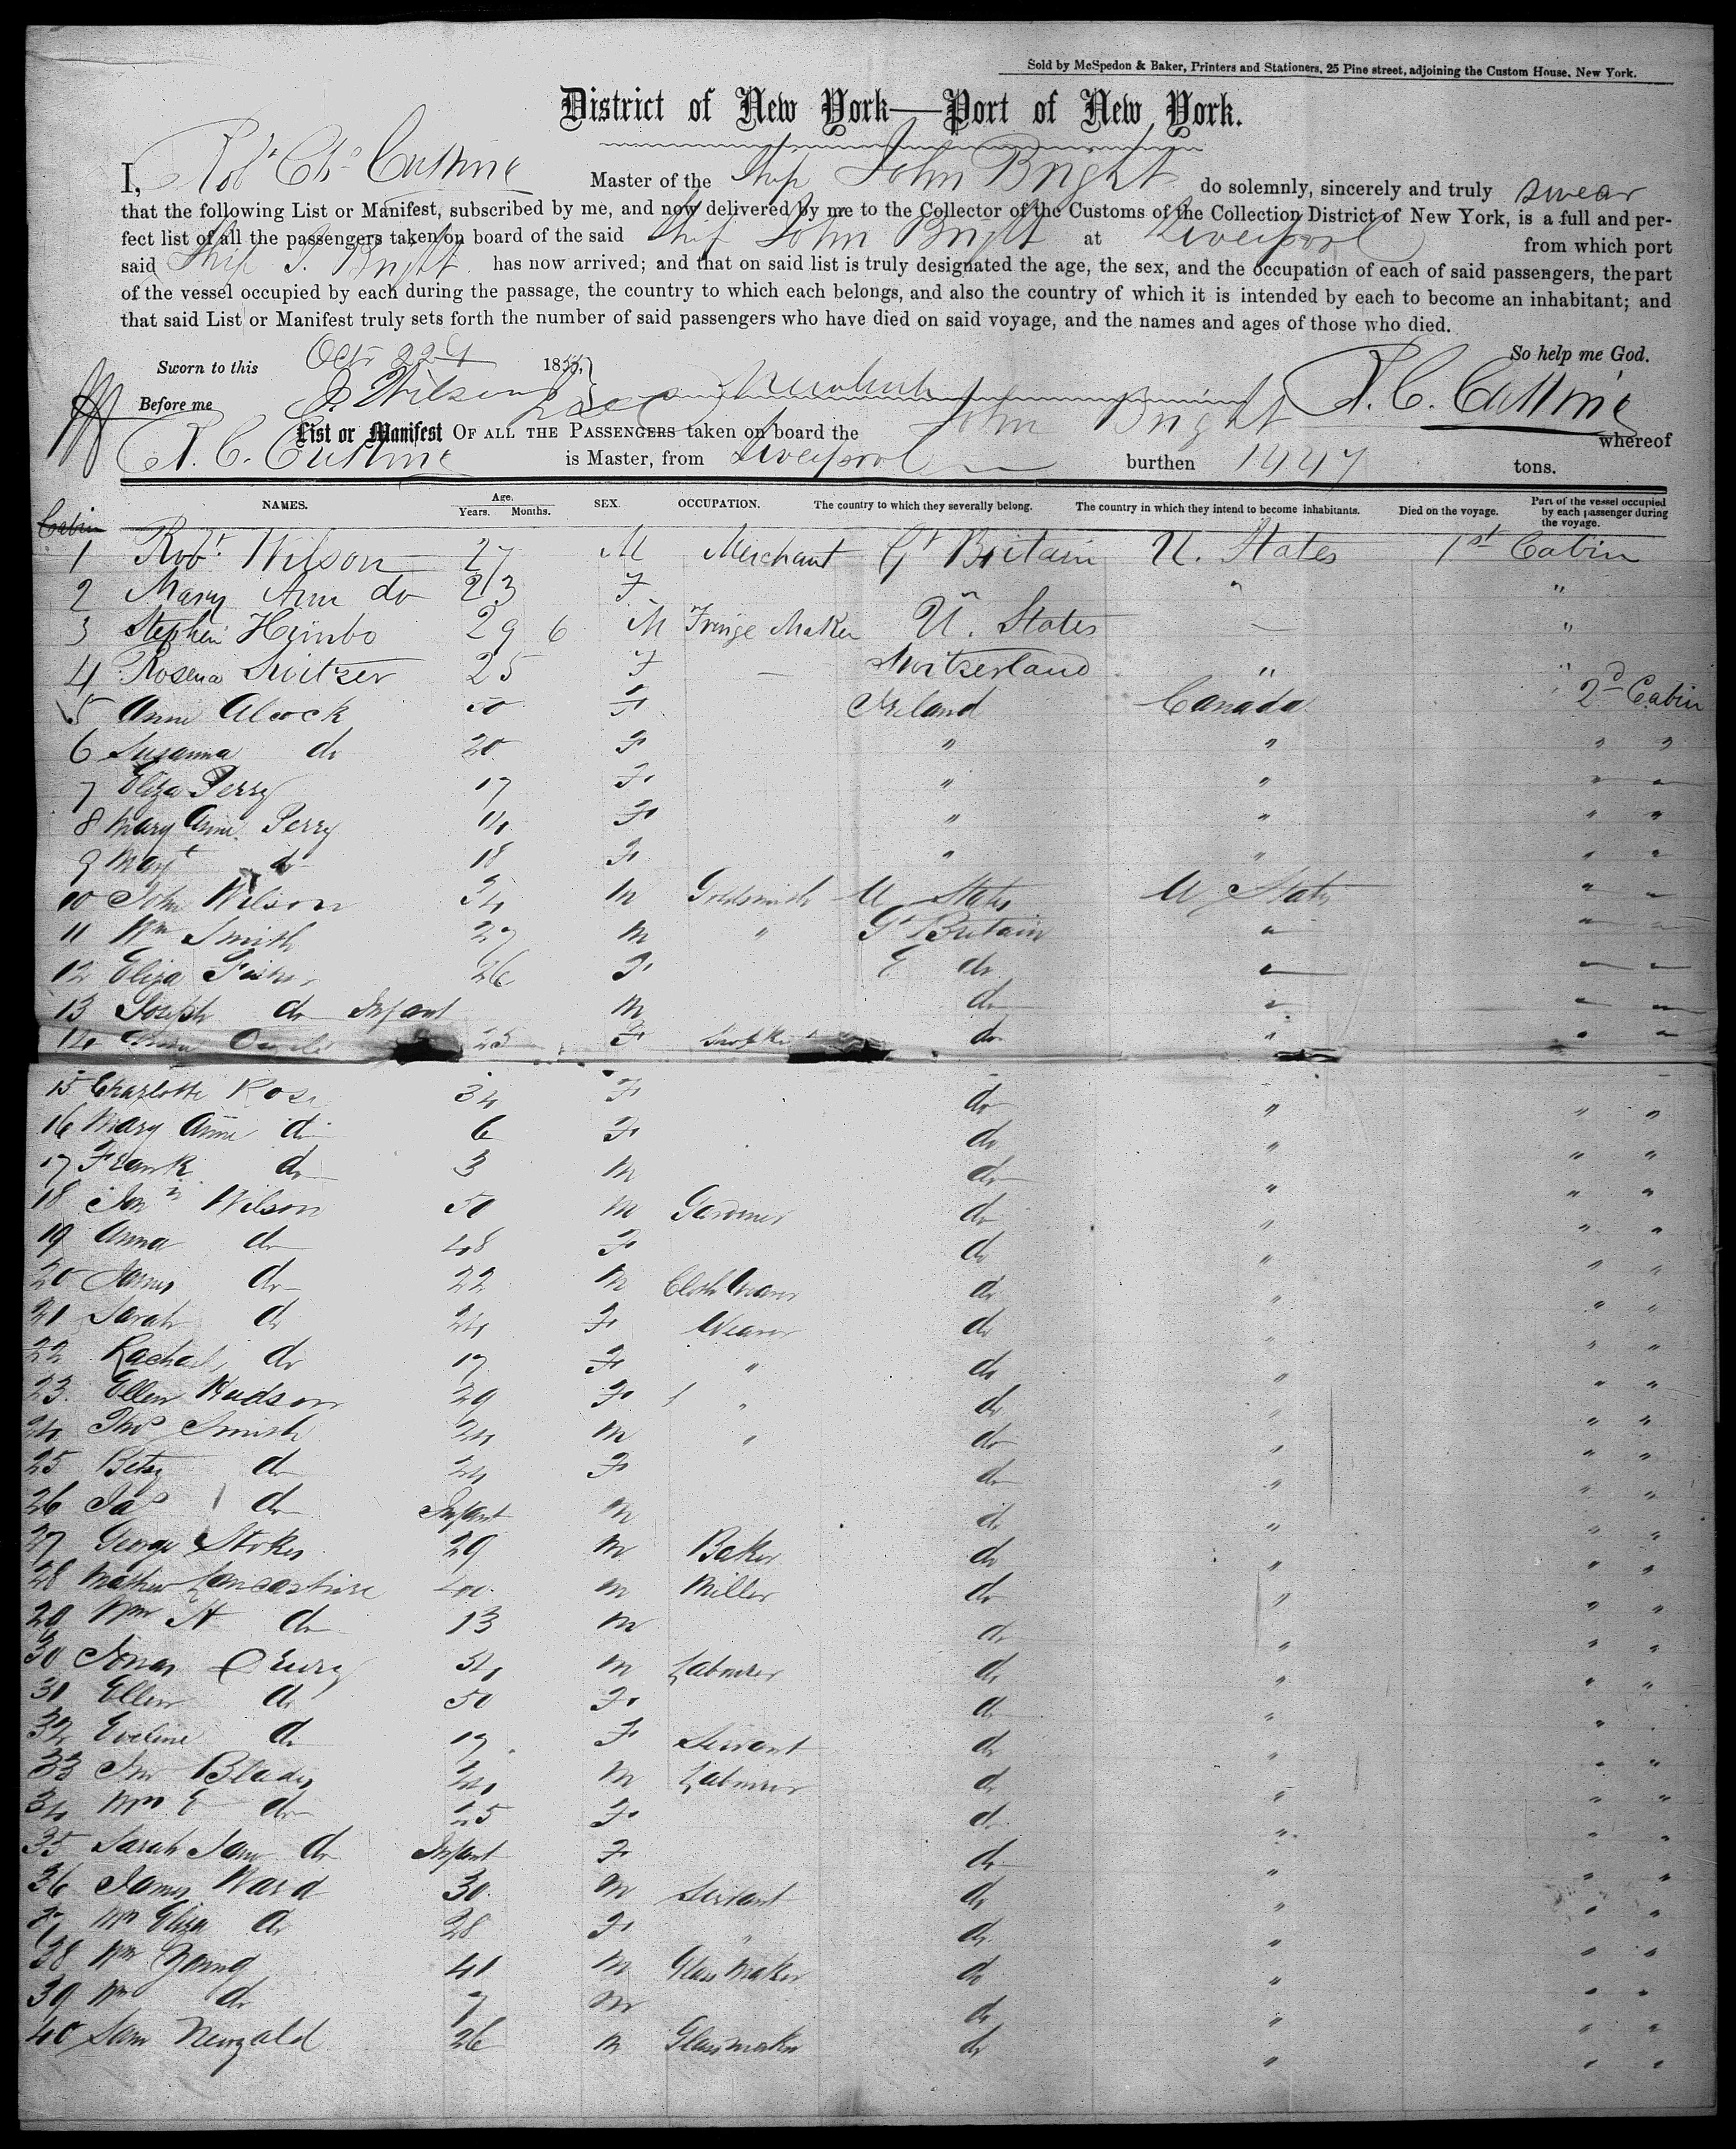 Sold by McSpedon & Baker, Printers and Stationers, 25 Pine street, adjoining the Custom House, New York.
District of New York—Port of New York.
I, Robt Chs Cutting Master of the Ship John Bright do solemnly, sincerely and truly swear
that the following List or Manifest, subscribed by me, and now delivered by me to the Collector of the Customs of the Collection District of New York, is a full and per-
fect list of all the passengers taken on board of the said Ship John Bright at Liverpool from which port
said Ship J. Bright has now arrived; and that on said list is truly designated the age, the sex, and the occupation of each of said passengers, the part
of the vessel occupied by each during the passage, the country to which each belongs, and also the country of which it is intended by each to become an inhabitant; and
that said List or Manifest truly sets forth the number of said passengers who have died on said voyage, and the names and ages of those who died.
So help me God.
Sworn to this Octr 22d 185
Before me J. Wilson R. C. Cutting
List or Manifest OF ALL THE PASSENGERS taken on board the John Bright whereof
R. C. Cutting is Master, from Liverpool burthen tons.
NAMES. Age. Years. Months. SEX. OCCUPATION. The country to which they severally belong. The country in which they intend to become inhabitants. Died on the voyage. Part of the vessel occupied by each passenger during the voyage.
Cabin
1 Robt Wilson 27 M Merchant Gt Britain U. States 1st Cabin
2 Mary Ann do 23 F " " "
3 Stephen Heimbo 29 6 M Fringe Maker U. States — "
4 Rosena Switzer 25 F — Switzerland " "
5 Anne Alcock 50 F Ireland Canada 2d Cabin
6 Susanna do 20 F " " " "
7 Eliza Perry 17 F " " " "
8 Mary Anne Perry 14 F " " " "
9 Margt do 18 F " " " "
10 John Wilson 34 M Goldsmith U States U States " "
11 Wm Smith 27 M " Gt Britain " " "
12 Eliza Fisher 26 F do " " "
13 Joseph do Infant M do " " "
14 25 F do " " "
15 Charlotte Rose 34 F do " " "
16 Mary Anne do 6 F do " " "
17 Frank do 3 M do " " "
18 Wilson 50 M Gardner do " " "
19 Anna do 48 F do " " "
20 James do 22 M Cloth Weaver do " " "
21 Sarah do 24 F Weaver do " " "
22 Rachael do 17 F " do " " "
23 Ellen Hudson 29 F " do " " "
24 Thos Smith 24 M " do " " "
25 Betsy do 24 F do " " "
26 Jas do Infant M do " " "
27 George Stokes 29 M Baker do " " "
28 Mathew Lancashire 40 M Miller do " " "
29 Wm H do 13 M do " " "
30 Jonas Drury 54 M Labourer do " " "
31 Ellen do 50 F do " "
32 Eveline do 17 F Servant do " " "
33 Jno Blades 24 M Labourer do " " "
34 Mrs E do 25 F do " " "
35 Sarah Jane do Infant F do " " "
36 James Ward 30 M Servant do " " "
37 Mrs Eliza do 28 F " do " " "
38 Wm Young 41 M Glass Maker do " " "
39 Wm do 7 M do " " "
40 Sam 26 M Glassmaker do " " "